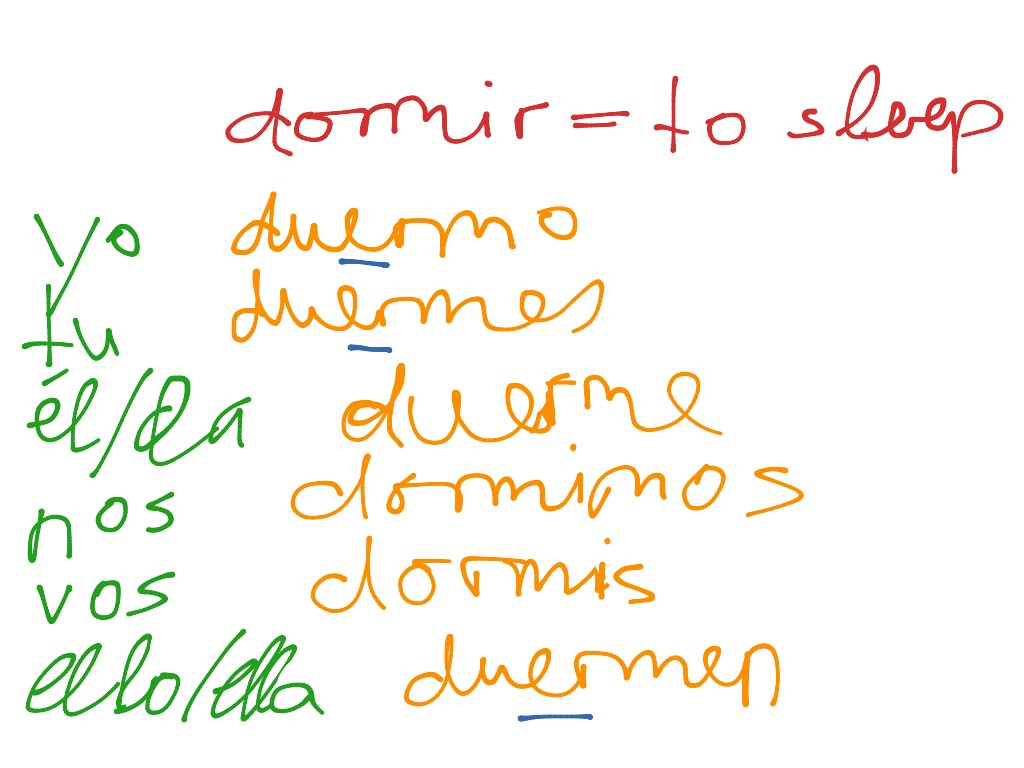 dormir = to sleep
yo duermo
tu duermes
él/ella duerme
nos dormimos
vos dormis
ello/ella duermen